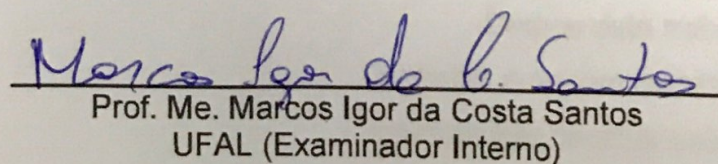 Marcos Igor da C. Santos
Prof. Me. Marcos Igor da Costa Santos
UFAL (Examinador Interno)